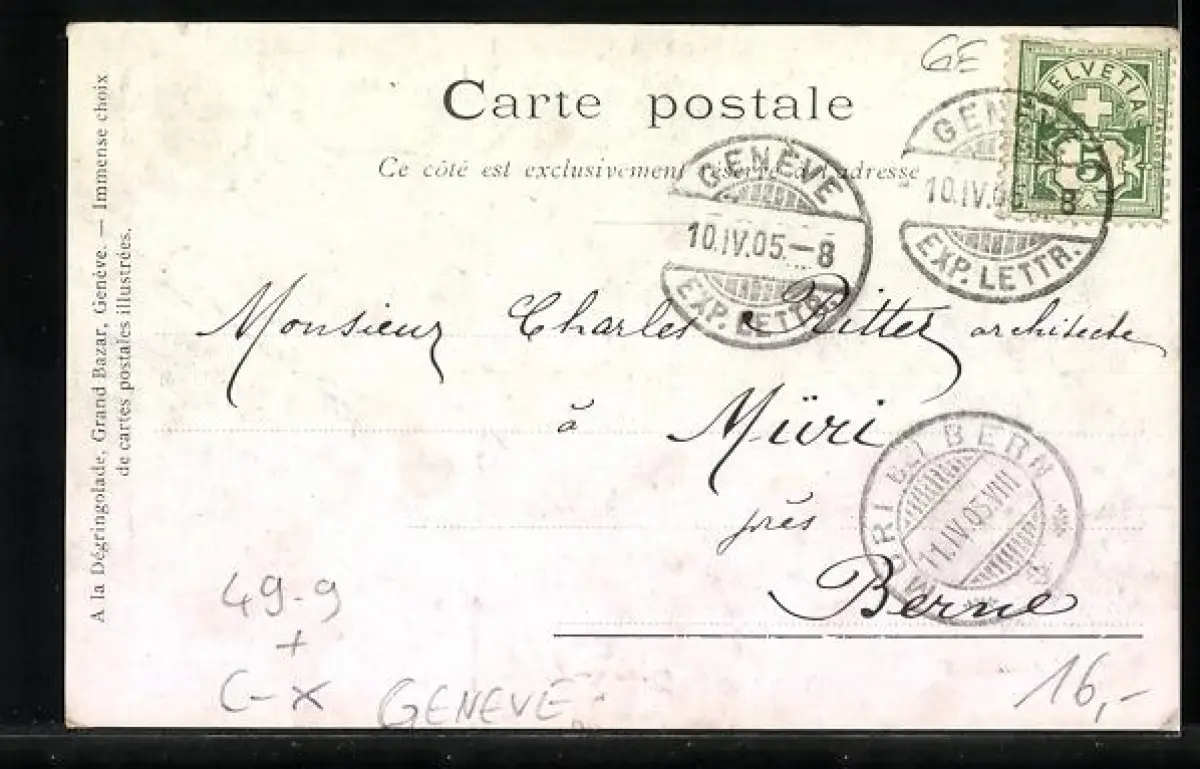 GE
HELVETIA
5
Carte postale
Ce côté est exclusivement réservé à l'adresse
GENÈVE
10.IV.05.–8
EXP. LETTR.
GENÈVE
10.IV.05.–8
EXP. LETTR.
Monsieur Charles Ritter architecte
à Müri
près
Berne
MURI BEI BERN
11.IV.05.VIII
A la Dégringolade, Grand Bazar, Genève. — Immense choix
de cartes postales illustrées.
49-9
+
C-X GENEVE
16,-